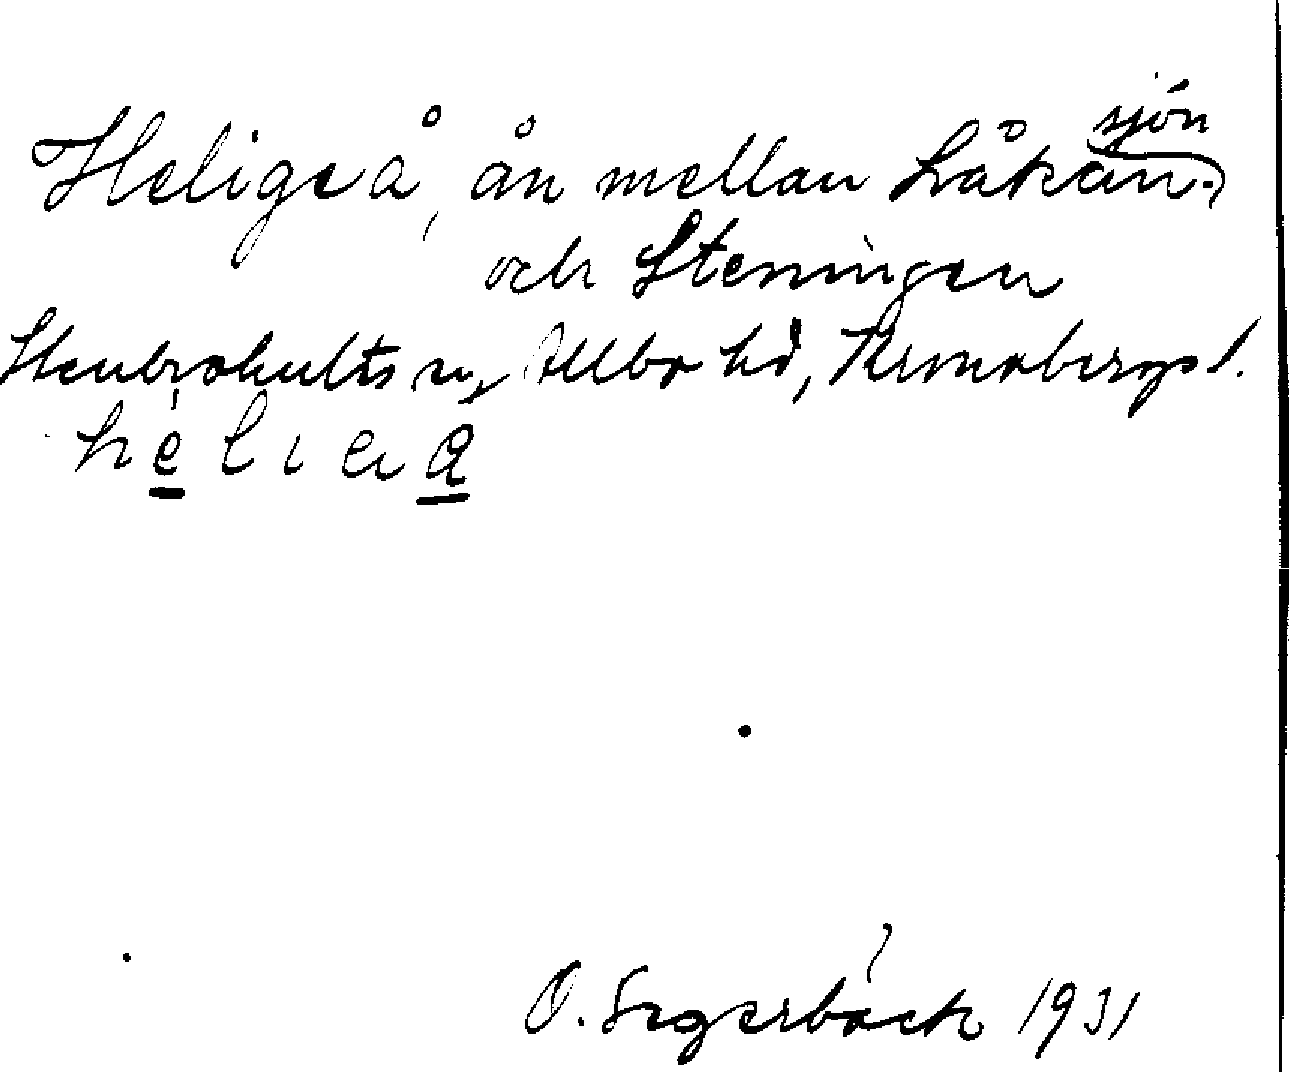 Heligeå, ån mellan Låkan-
sjön
och Steningen
Stenbrohults sn, Allbo hd, Kronobergs l.
O. Segerbäck 1931